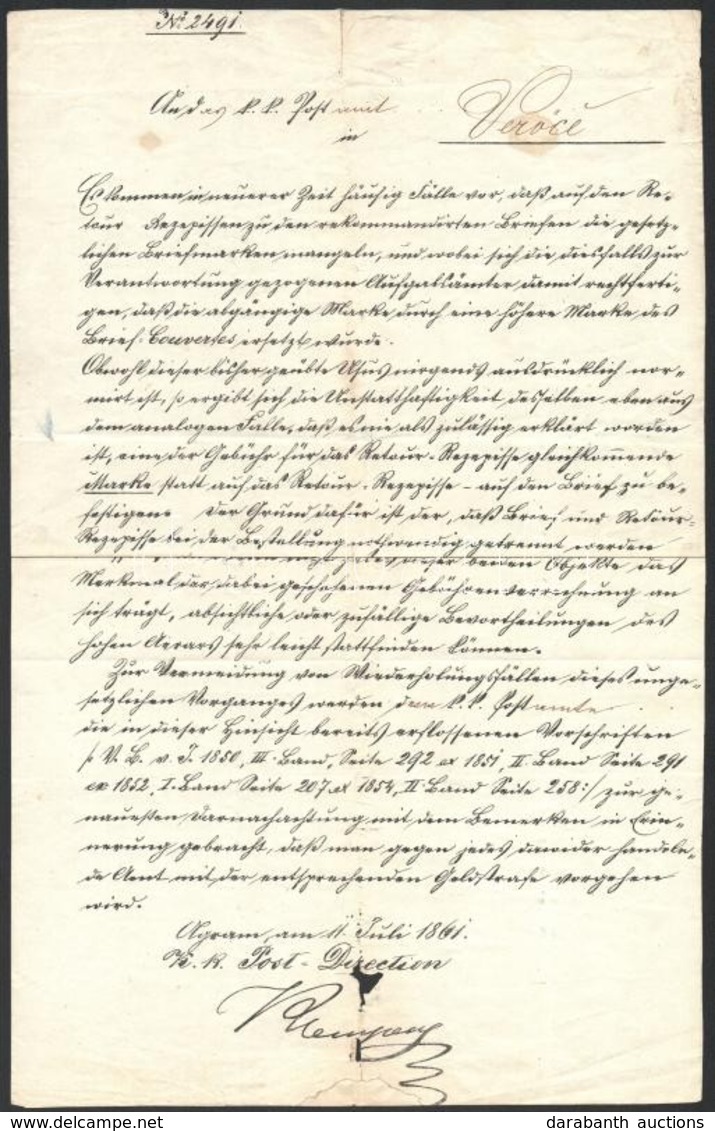 No 2491.
An das k. k. Postamt
in Verőce
Es kommen in neuerer Zeit häufig Fälle vor, daß auf den Re-
tour Rezepissen zu den rekommandirten Briefen die gesetz-
lichen Briefmarken mangeln, und wobei sich die diesfalls zur
Verantwortung gezogenen Aufgabsämter damit rechtferti-
gen, daß die abgängige Marke durch eine höhere Marke des
Brief-Couvertes ersetzt wurde.
Obwohl dieser bisher geübte Usus nirgends ausdrücklich nor-
mirt ist, so ergibt sich die Unstatthaftigkeit desselben eben aus
dem analogen Falle, daß es nie als zulässig erklärt worden
ist, eine der Gebühr für das Retour-Rezepisse gleichkommende
Marke statt auf das Retour-Rezepisse - auf den Brief zu be-
festigen. Der Grund dafür ist der, daß Brief und Retour-
Rezepisse bei der Bestellung nothwendig getrennt werden
nicht jedes dieser beiden Objekte das
Merkmal der dabei geschehenen Gebührenverrechnung an
sich trägt, absichtliche oder zufällige Bevortheilungen des
hohen Aerars sehr leicht stattfinden können.
Zur Vermeidung von Wiederholungsfällen dieses unge-
setzlichen Vorganges werden dem k. k. Postamte
die in dieser Hinsicht bereits erflossenen Vorschriften
/: V. B. v. J. 1850, III. Band, Seite 292 ex 1851, II. Band Seite 291
ex 1852, I. Band Seite 207 ex 1854, II. Band Seite 258:/ zur ge-
nauesten Darnachachtung mit dem Bemerken in Erin-
nerung gebracht, daß man gegen jedes dawider handeln-
de Amt mit der entsprechenden Geldstrafe vorgehen
wird.
Agram, am 11 Juli 1861.
K. k. Post-Direction
darabanth auctions